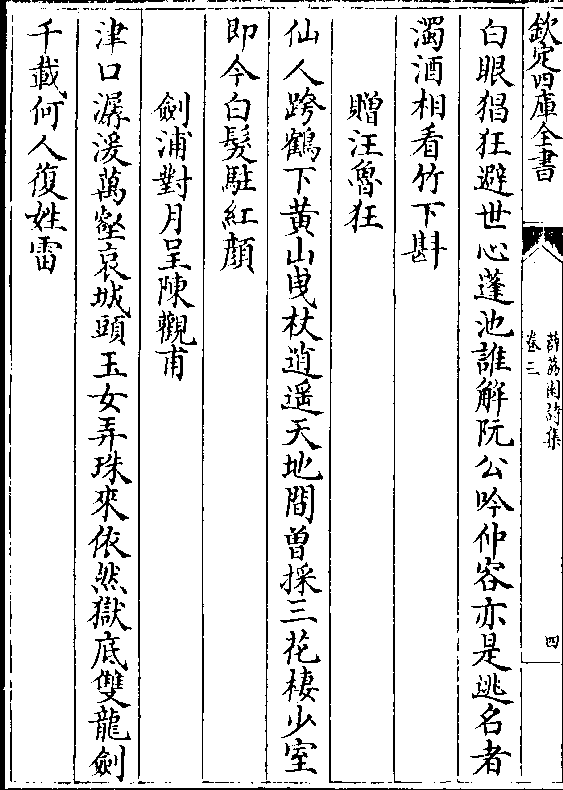 欽定四庫全書
薜荔園詩集
卷三
四
白眼猖狂避世心蓬池誰解阮公吟仲容亦是逃名者
濁酒相看竹下斟
贈汪魯狂
仙人跨鶴下黄山曳杖逍遥天地間曽採三花棲少室
即今白髮駐紅顔
劍浦對月呈陳觀甫
津口潺湲萬壑哀城頭玉女弄珠來依然獄底雙龍劍
千載何人復姓雷